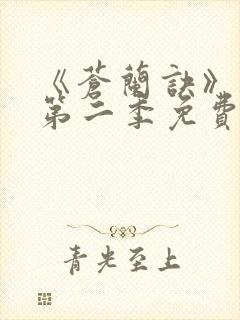 《蒼蘭訣》
第二季免費
青光至上